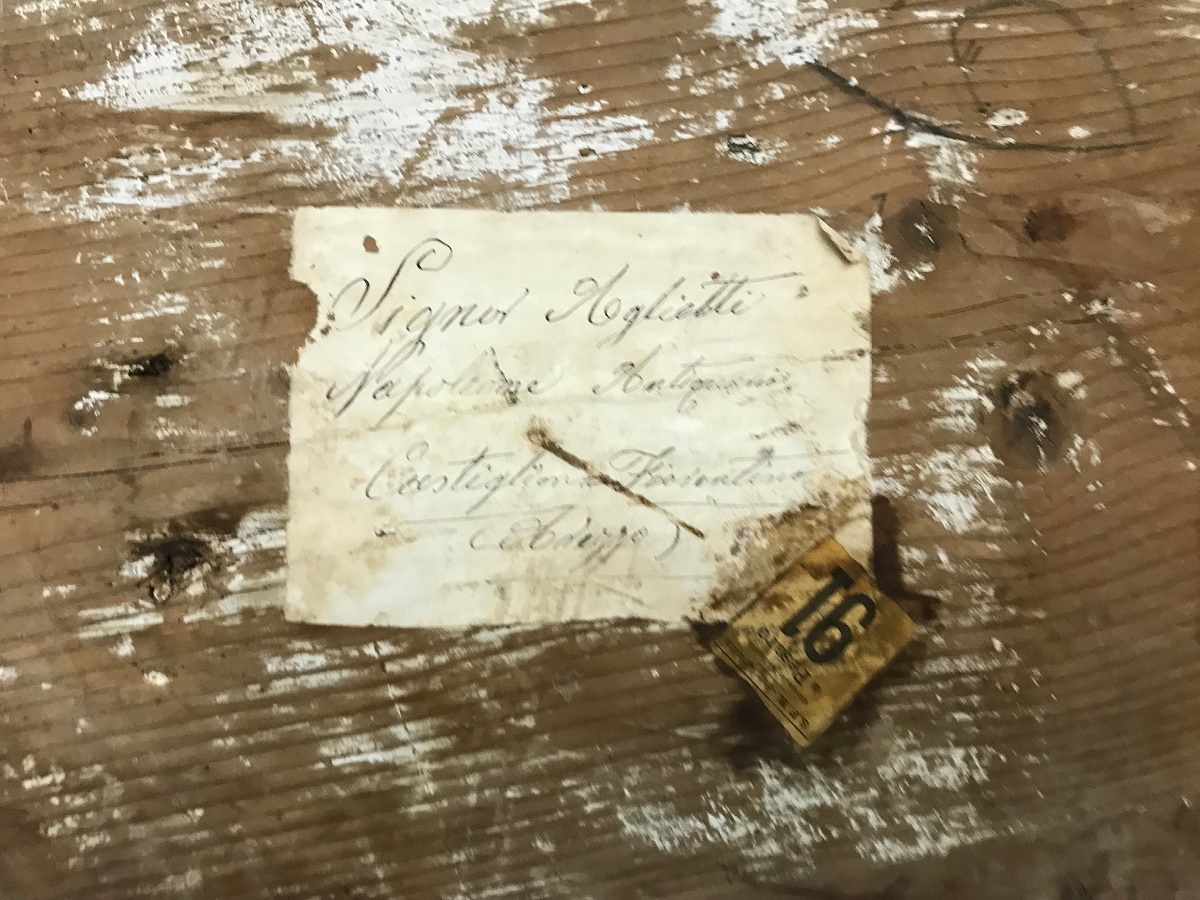 Signor Aglietti
Napoleone Antiquario
Castiglion Fiorentino
(Arezzo)
16